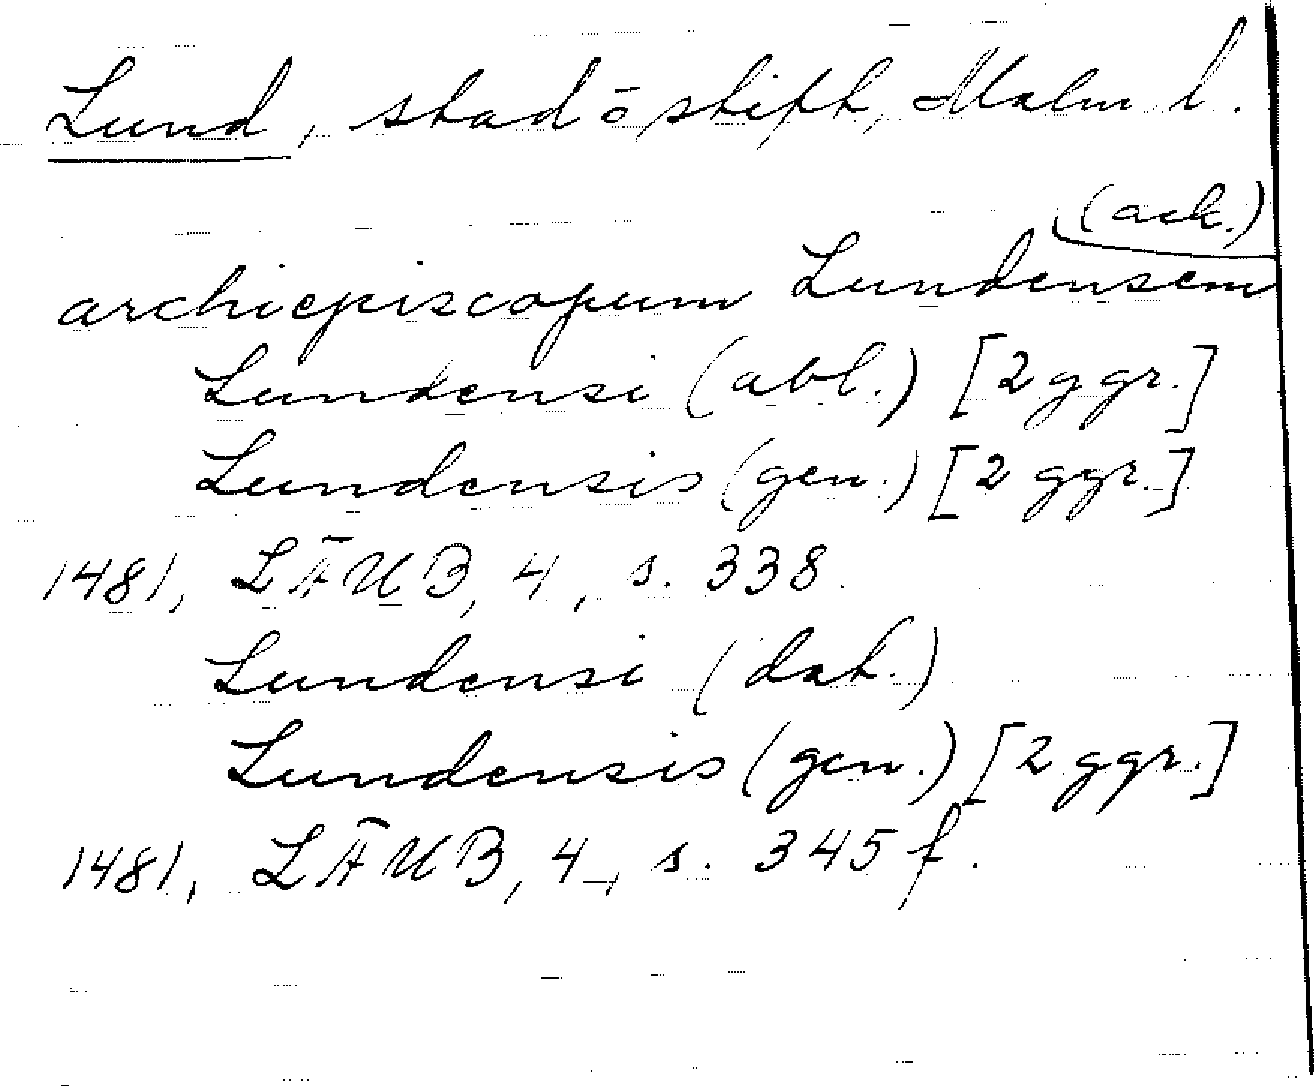 Lund, stad o stift, Malm l.
(ack.)
archiepiscopum Lundensem
Lundensi (abl.) [2 ggr.]
Lundensis (gen.) [2 ggr.]
1481, LÄUB, 4, s. 338.
Lundensi (dat.)
Lundensis (gen.) [2 ggr.]
1481, LÄUB, 4, s. 345 f.